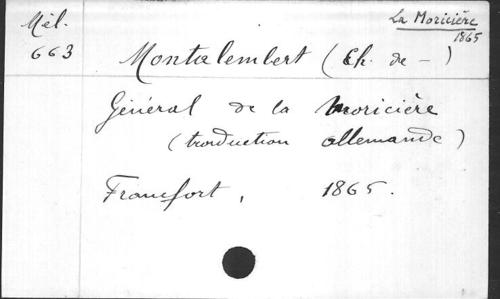 Mél. La Moricière
663 1865
Montalembert (Ch. de -)
Général de la Moricière
(traduction allemande)
Francfort, 1865.